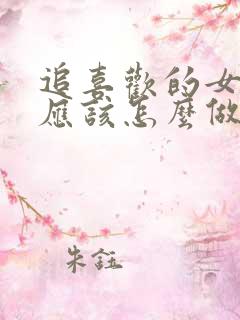 追喜歡的女
應該怎麼做
朱鈺